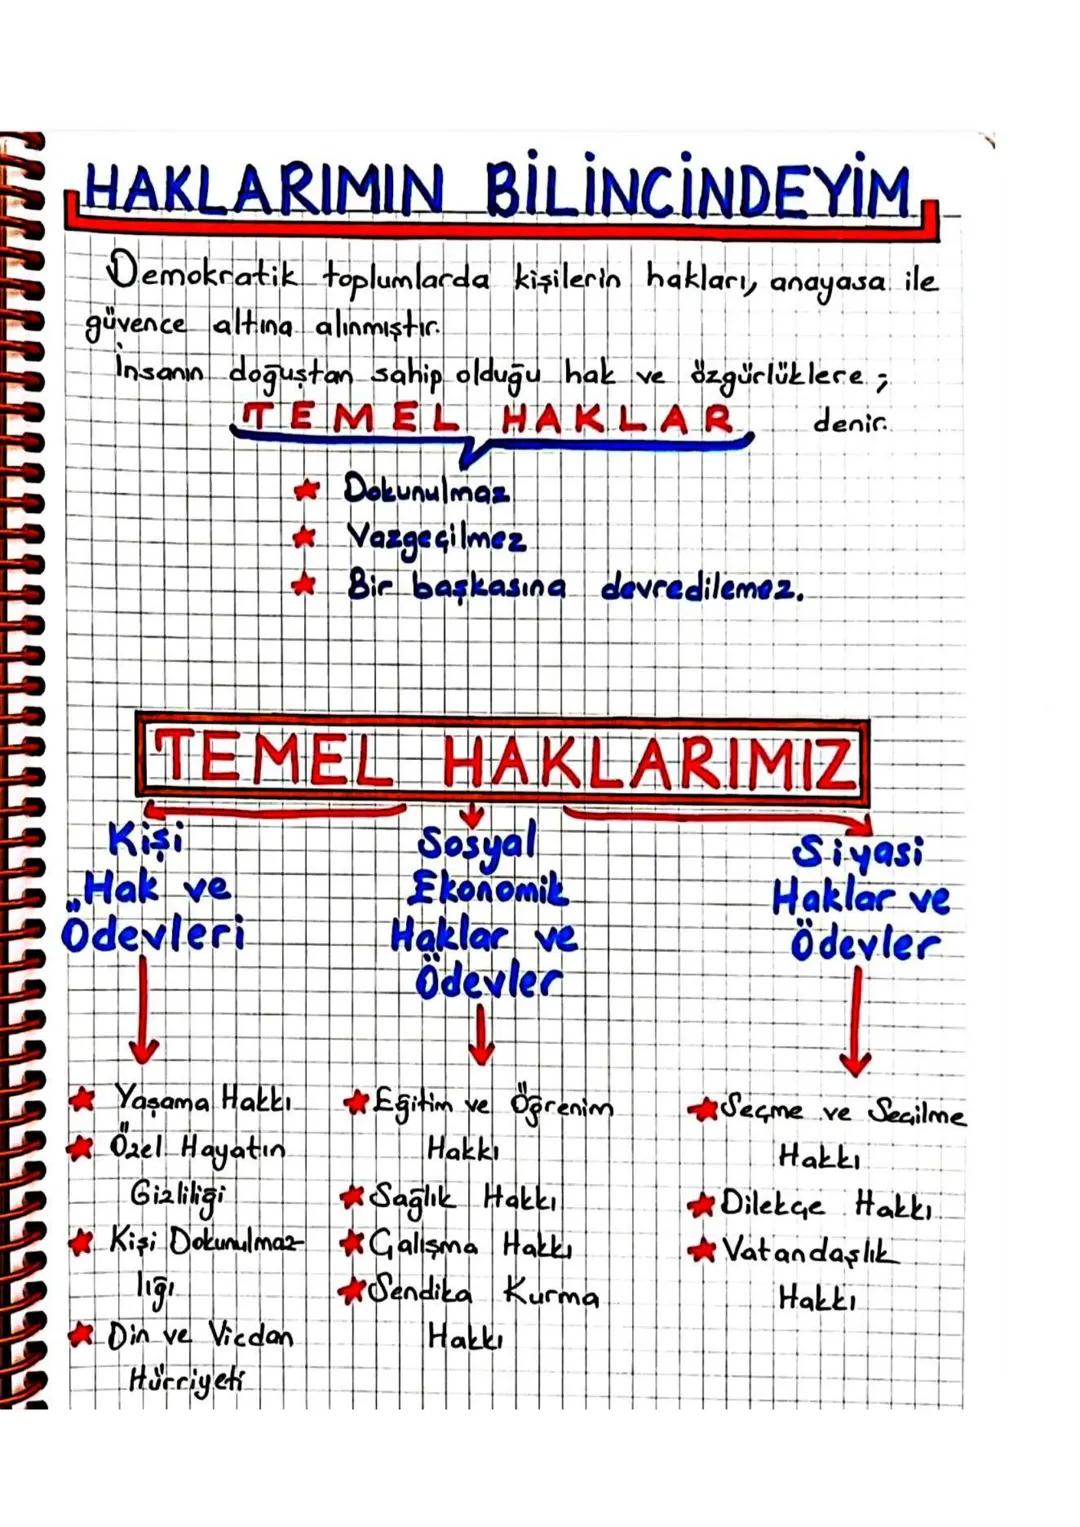 HAKLARIMIN BİLİNCİNDEYİM
Demokratik toplumlarda kişilerin hakları, anayasa ile
güvence altına alınmıştır.
İnsanın doğuştan sahip olduğu hak ve özgürlüklere ;
TEMEL HAKLAR denir.
Dokunulmaz
Vazgeçilmez
Bir başkasına devredilemez.
TEMEL HAKLARIMIZ
Kişi
Hak ve
Ödevleri
Yaşama Hakkı
Özel Hayatın
Gizliliği
Kişi Dokunulmaz-
lığı
Din ve Vicdan
Hürriyeti
Sosyal
Ekonomik
Haklar ve
Ödevler
Eğitim ve Öğrenim
Hakkı
Sağlık Hakkı
Çalışma Hakkı
Sendika Kurma
Hakkı
Siyasi
Haklar ve
Ödevler
Seçme ve Seçilme
Hakkı
Dilekçe Hakkı
Vatandaşlık
Hakkı